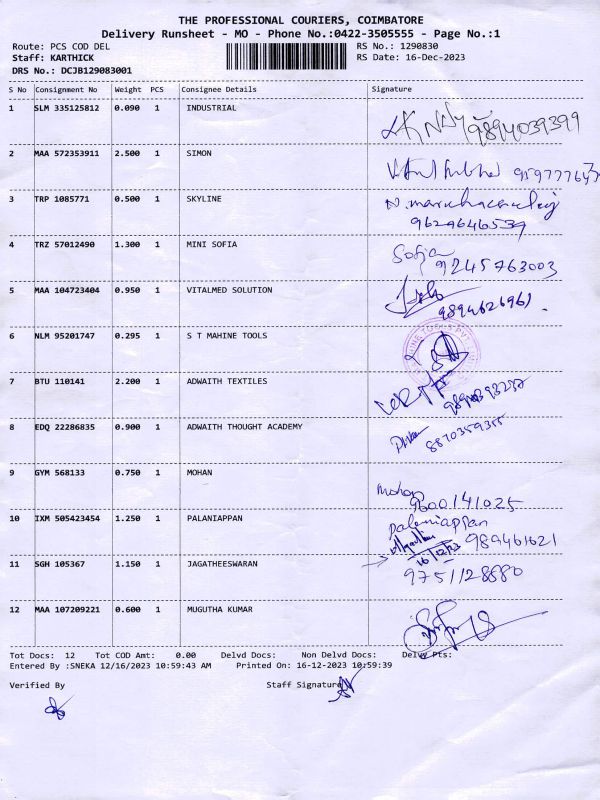 THE PROFESSIONAL COURIERS, COIMBATORE
Delivery Runsheet - MO - Phone No.:0422-3505555 - Page No.:1
Route: PCS COD DEL RS No.: 1290830
Staff: KARTHICK RS Date: 16-Dec-2023
DRS No.: DCJB129083001
S No Consignment No Weight PCS Consignee Details Signature
1 SLM 335125812 0.090 1 INDUSTRIAL
9894039399
2 MAA 572353911 2.500 1 SIMON
3 TRP 1085771 0.500 1 SKYLINE
9629646539
4 TRZ 57012490 1.300 1 MINI SOFIA Sofia
9245763003
5 MAA 104723404 0.950 1 VITALMED SOLUTION
9894626961
6 NLM 95201747 0.295 1 S T MAHINE TOOLS
7 BTU 110141 2.200 1 ADWAITH TEXTILES
8 EDQ 22286835 0.900 1 ADWAITH THOUGHT ACADEMY
8870359355
9 GYM 568133 0.750 1 MOHAN
Mohan
9600141025
10 IXM 505423454 1.250 1 PALANIAPPAN Palaniappan
989461621
16/12/23
11 SGH 105367 1.150 1 JAGATHEESWARAN 9751128880
12 MAA 107209221 0.600 1 MUGUTHA KUMAR
Tot Docs: 12 Tot COD Amt: 0.00 Delvd Docs: Non Delvd Docs: Delvy Pts:
Entered By :SNEKA 12/16/2023 10:59:43 AM Printed On: 16-12-2023 10:59:39
Verified By Staff Signature